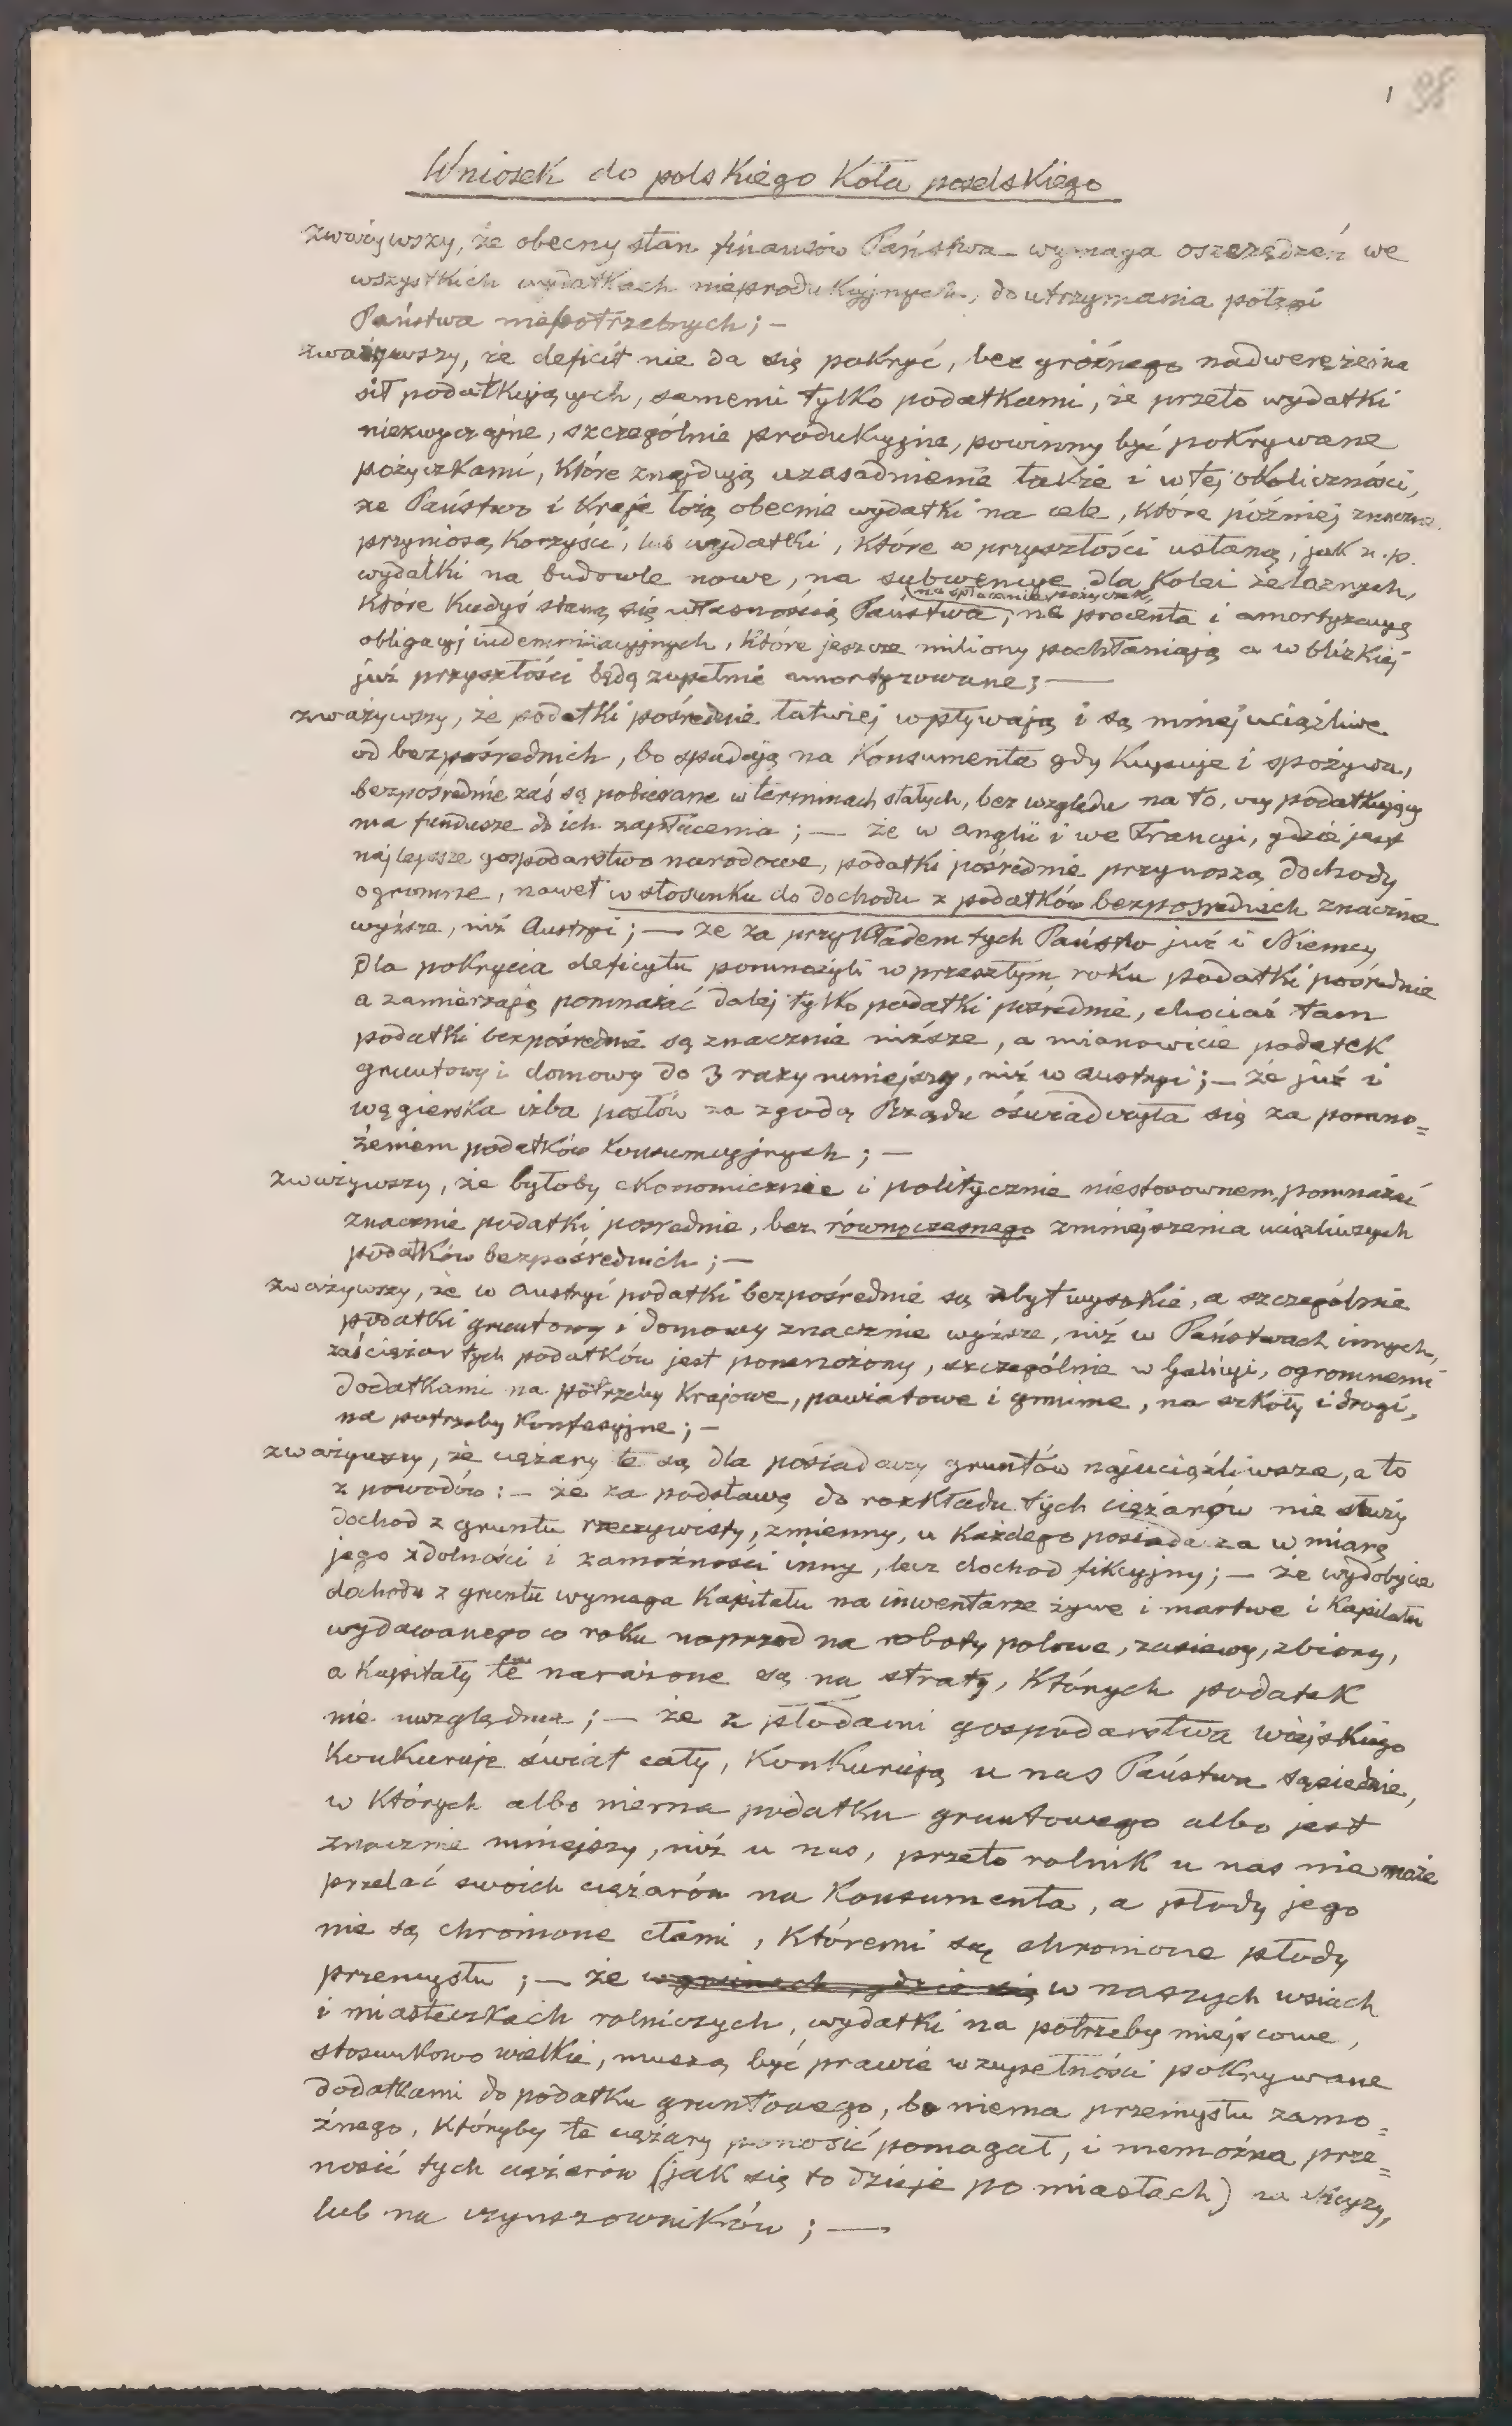 1 98
Wniosek do polskiego Koła poselskiego
zważywszy, że obecny stan finansów Państwa wymaga oszczędzeń we
wszystkich wydatkach nieprodukcyjnych, do utrzymania potęgi
Państwa niepotrzebnych; —
zważywszy, że deficit nie da się pokryć, bez gróźnego nadwerężenia
sił podatkujących, samemi tylko podatkami, że przeto wydatki
niezwyczajne, szczególnie produkcyjne, powinny być pokrywane
pożyczkami, które znajdują uzasadnienie także i w tej okoliczności,
że Państwo i Kraje łożą obecnie wydatki na cele, które później znaczne
przyniosą korzyści, lub wydatki, które w przyszłości ustaną, jak n.p.
wydatki na budowle nowe, na subwencye dla Kolei żelaznych,
które kiedyś staną się własnością Państwa, na spłacanie pożyczek, na procenta i amortyzacyą
obligacyj indemnizacyjnych, które jeszcze miliony pochłaniają a w blizkiej
już przyszłości będą zupełnie amortyzowane; —
zważywszy, że podatki pośrednie łatwiej wpływają i są mniej uciążliwe
od bezpośrednich, bo spadają na Konsumenta gdy Kupuje i spożywa,
bezpośrednie zaś są pobierane w terminach stałych, bez względu na to, czy podatkujący
ma fundusze do ich zapłacenia; — że w Anglii i we Francyi, gdzie jest
najlepsze gospodarstwo narodowe, podatki pośrednie przynoszą dochody
ogromne, nawet w stosunku do dochodu z podatków bezpośrednich znacznie
wyższe, niż Austryi; — że za przykładem tych Państw już i Niemcy
dla pokrycia deficytu pomnożyli w przeszłym roku podatki pośrednie
a zamierzają pomnażać dalej tylko podatki pośrednie, chociaż tam
podatki bezpośrednie są znacznie niższe, a mianowicie podatek
gruntowy i domowy do 3 razy mniejszy, niż w Austryi; — że już i
węgierska izba posłów za zgodą Rządu oświadczyła się za pomno=
żeniem podatków konsumcyjnych; —
zważywszy, że byłoby ekonomicznie i politycznie niestosownem, pomnażać
znacznie podatki pośrednie, bez równoczesnego zmniejszenia uciążliwszych
podatków bezpośrednich; —
zważywszy, że w Austryi podatki bezpośrednie są zbyt wysokie, a szczególnie
podatki gruntowy i domowy znacznie wyższe, niż w Państwach innych,
zaś ciężar tych podatków jest pomnożony, szczególnie w Galicyi, ogromnemi
dodatkami na potrzeby Krajowe, powiatowe i gminne, na szkoły i drogi,
na potrzeby Konfesyjne; —
zważywszy, że ciężary te są dla posiadaczy gruntów najuciążliwsze, a to
z powodów: — że za podstawę do rozkładu tych ciężarów nie służy
dochód z gruntu rzeczywisty, zmienny, u każdego posiadacza w miarę
jego zdolności i zamożności inny, lecz dochod fikcyjny; — że wydobycie
dochodu z gruntu wymaga Kapitału na inwentarze żywe i martwe i Kapitału
wydawanego co roku naprzod na roboty polowe, zasiewy, zbiory,
a Kapitały te narażone są na straty, których podatek
nie uwzględnia; — że z płodami gospodarstwa wiejskiego
Konkuruje świat cały, Konkurują u nas Państwa sąsiednie,
w których albo niema podatku gruntowego albo jest
znacznie mniejszy, niż u nas, przeto rolnik u nas nie może
przelać swoich ciężarów na Konsumenta, a płody jego
nie są chronione cłami, któremi są chronione płody
przemysłu; — że w gminach, gdzie się w naszych wsiach
i miasteczkach rolniczych, wydatki na potrzeby miejscowe,
stosunkowo wielkie, muszą być prawie w zupełności pokrywane
dodatkami do podatku gruntowego, bo niema przemysłu zamo=
żnego, któryby te ciężary ponosić pomagał, i niemożna prze=
nosić tych ciężarów (jak się to dzieje po miastach) na
lub na czynszowników; —